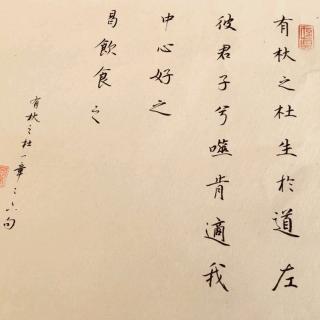 有杕之杜生於道左
彼君子兮噬肯適我
中心好之
曷飲食之
有杕之杜一章章六句